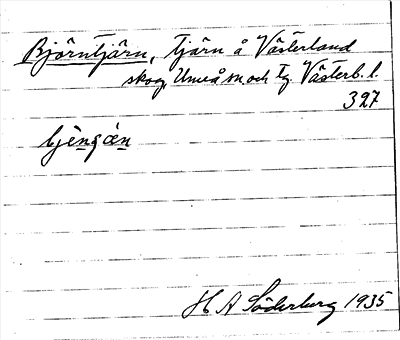 Björntjärn, Tjärn å Västerland
skog, Umeå sn och tg Västerb. l.
397
H A Söderberg 1935